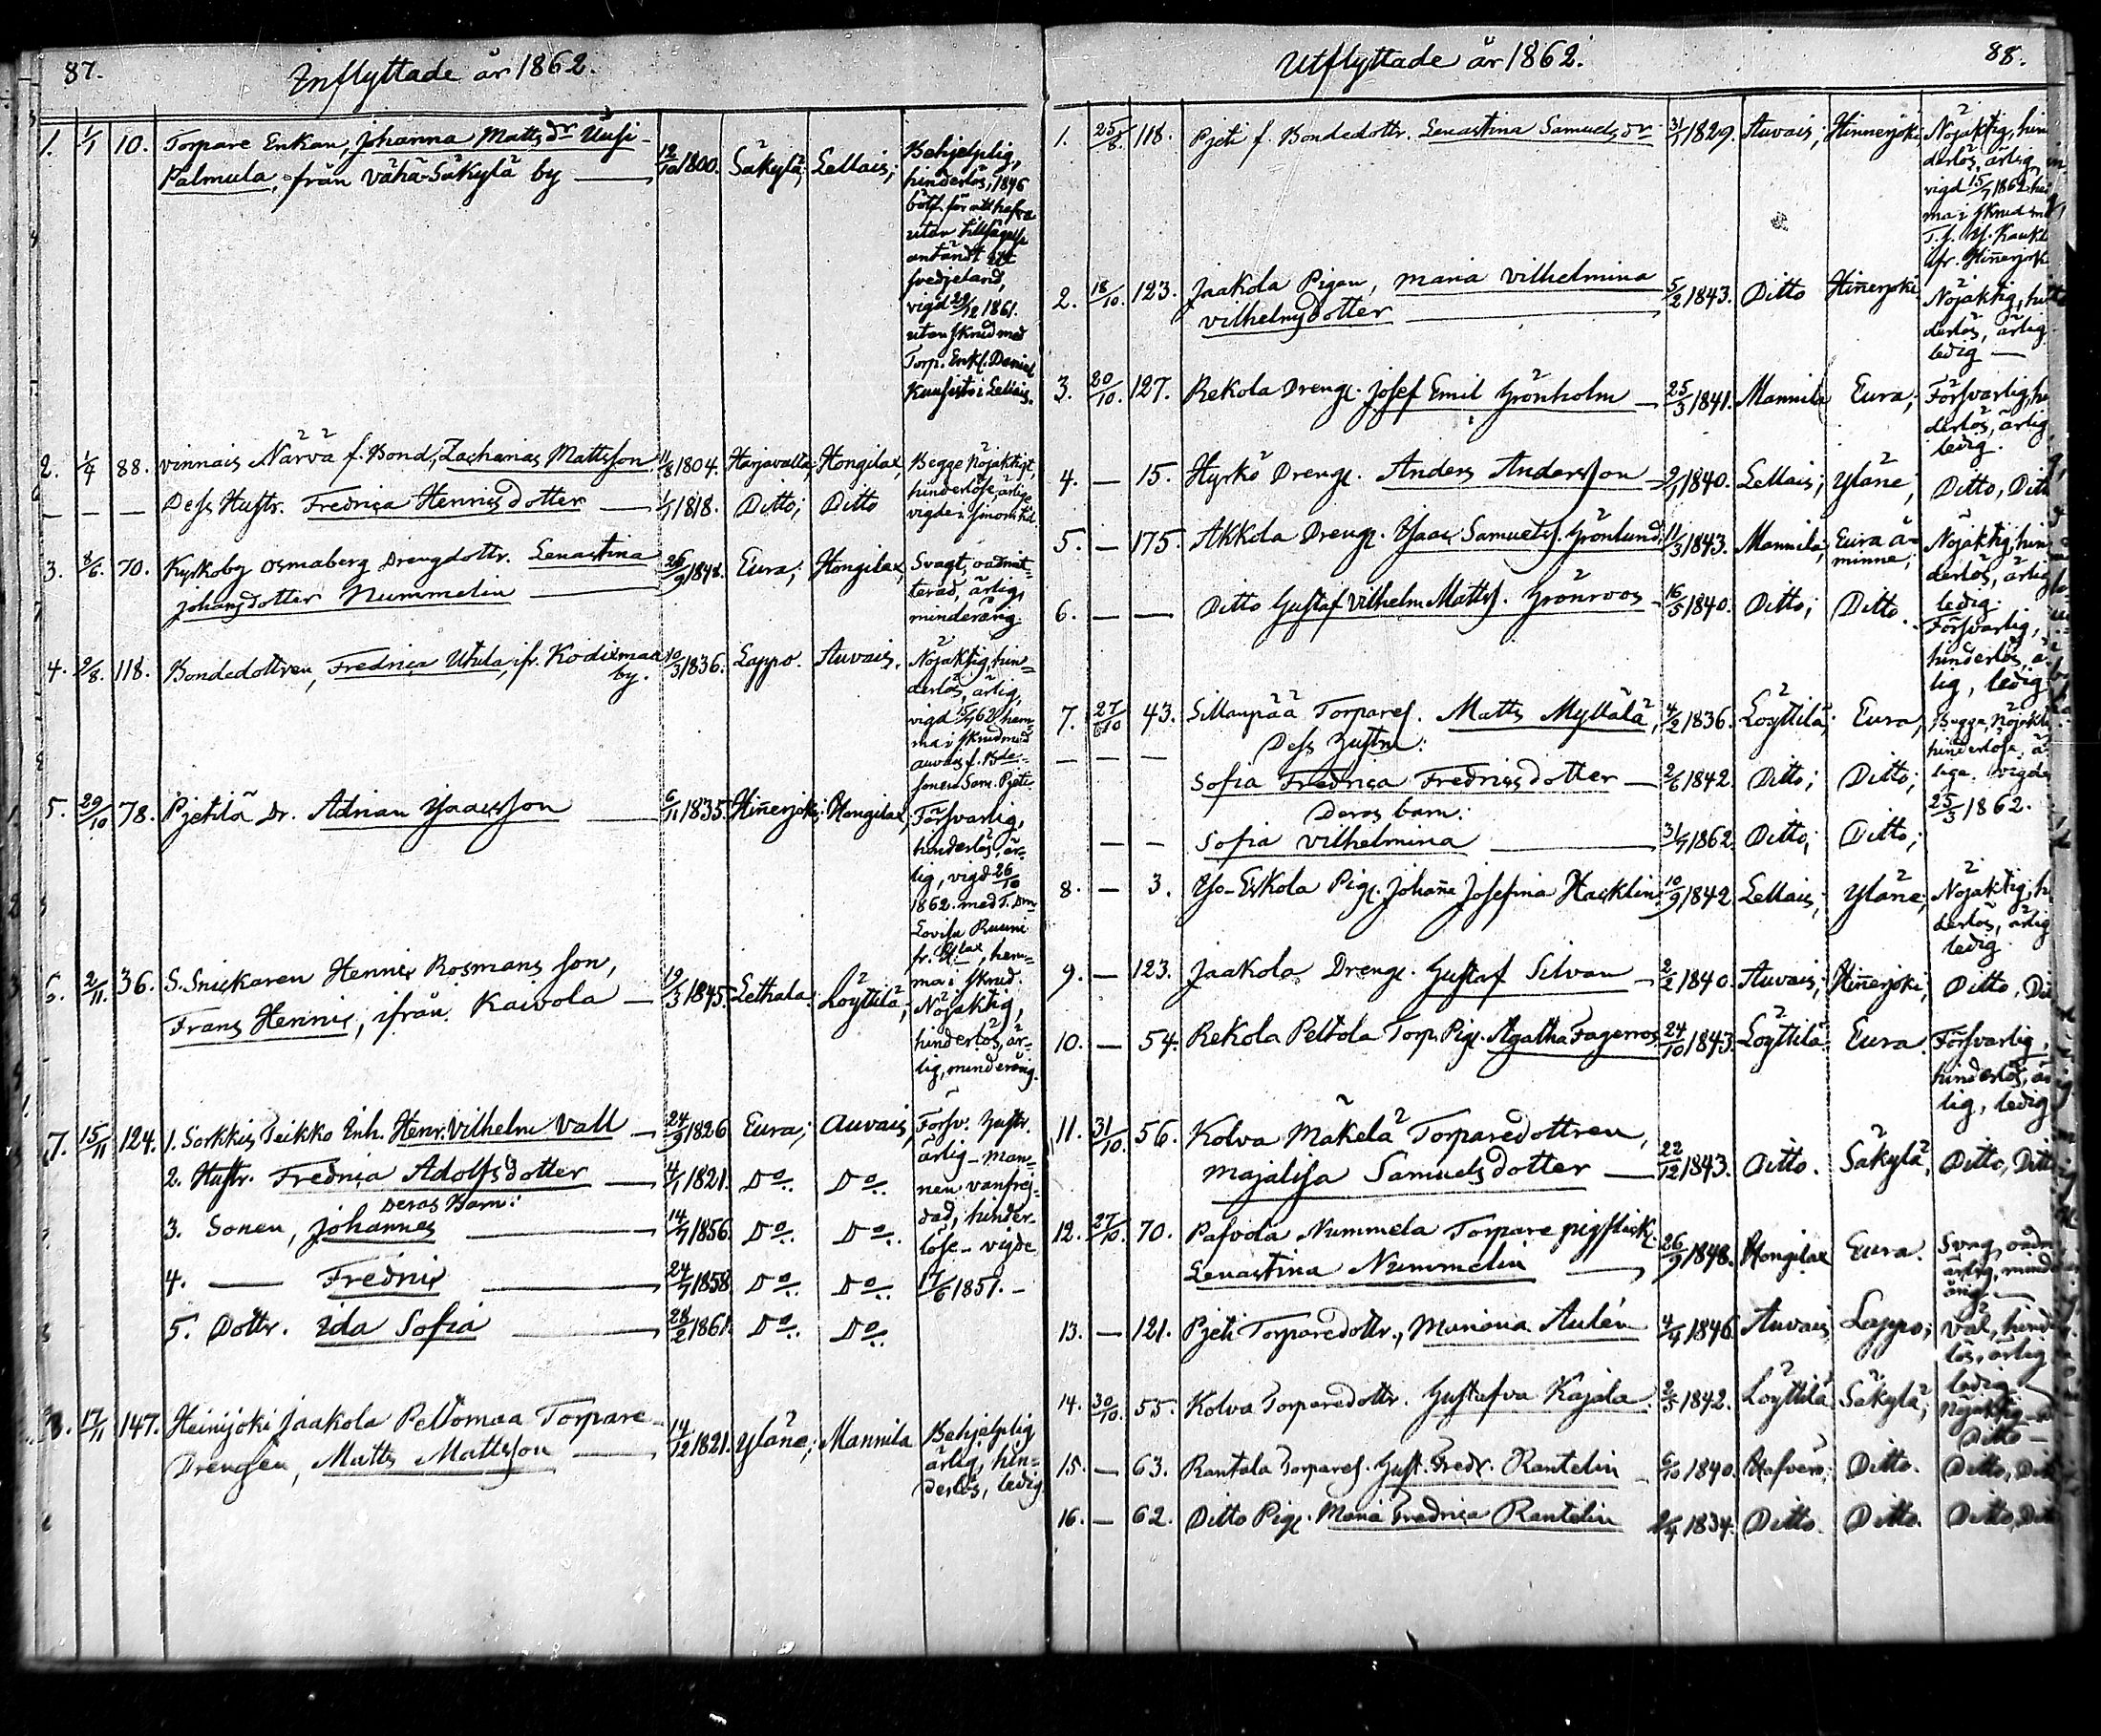 87.
Inflyttade år 1862.
1. 1/1 10. Torpare Enkan, Johanna Mattsdr Uusi-
Palmula, från Vähä-Säkylä by — 12/10 1800. Säkylä; Lellais;
Behjelplig,
hinderlös, 1846
bötf. för att hafva
utan tillsägelse
antändt ett
svedjeland,
vigd 29/12 1861.
utan skrud med
Torp. Enkl. Daniel
Kuusisto i Lellais.
2. 1/4 88. Vinnais Närvä f. Bond, Zacharias Mattsson 11/8 1804. Harjavalta, Hongilax,
— — — Dess Hustr. Fredrica Henricsdotter — 1/1 1818. Ditto; Ditto
Begge Nöjaktigt,
hinderlöse, ärlige
vigde i sinom tid.
3. 8/6. 70. Kyrkoby Osmaberg Drengdottr. Lenastina
Johansdotter Nummelin — 26/9 1848. Eura; Hongilax,
Svagt, oadmit-
terad, ärlig,
minderårig.
4. 2/8. 118. Bondedottren, Fredrica Utula, ifr. Kodixmaa
by. 10/3 1836. Lappo. Auvais.
Nöjaktig, hin-
derlös, ärlig,
vigd 15/7 62 hem-
ma i skrud med
Auvais f. Bde-
sonen Sam. Pjeti
5. 29/10 78. Pjetilä Dr. Adrian Isaacsson — 6/11 1835. Hinnerjoki; Hongilax,
Försvarlig,
hinderlös, är-
lig, vigd 26/10
1862. med T. Dr
Lovisa Ruuni
fr. H:lax, hem-
ma i skrud.
6. 2/11. 36. S. Snickaren Henric Rosmans son,
Frans Henric, ifrån Kaivola — 12/3 1845. Lethala; Löyttilä;
Nöjaktig,
hinderlös, är-
lig, minderårig.
7. 15/11 124. 1. Sorkkis Peikko Inh. Henr. Vilhelm Vall — 24/9 1826 Eura; Auvais,
2. Hustr. Fredrica Adolfsdotter — 4/1 1821. Do Do
Deras Barn:
3. Sonen, Johannes — 14/7 1856. Do Do
4. — Fredric — 24/7 1858. Do Do
5. Dottr. Ida Sofia — 28/2 1861. Do Do
Försv. Hustr.
ärlig - man-
nen vanfrej-
dad, hinder-
löse - vigde
17/6 1851. -
8. 17/11 147. Heinijoki Jaakola Peltomaa Torpare
Drengen, Matts Mattsson — 14/12 1821. Yläne; Mannila
Behjelplig
ärlig, hin-
derlös, ledig
88.
Utflyttade år 1862.
1. 25/8. 118. Pjeti f. Bondedottr. Lenastina Samuelsdr 31/1 1829. Auvais; Hinnerjoki
Nöjaktig, hin
derlös, ärlig
vigd 15/7 1862 hem
ma i skrud med
ifr. Hinnerjoki
2. 18/10. 123. Jaakola Pigan, Maria Vilhelmina
Vilhelmsdotter — 5/2 1843. Ditto Hinnerjoki
Nöjaktig, hin
derlös, ärlig
ledig —
3. 20/10. 127. Rekola Dreng. Josef Emil Grönholm — 25/3 1841. Mannila Eura;
Försvarlig, h
derlös, ärlig,
ledig.
4. — 15. Hyrkö Dreng. Anders Andersson — 2/1 1840. Lellais; Yläne; Ditto, Ditt
5. — 175. Akkola Dreng. Isaac Samuelss. Grönlund 11/3 1843. Mannila; Eura å-
minne;
Nöjaktig, hin
derlös, ärlig
ledig.
6. — — Ditto Gustaf Vilhelm Mattss. Grönroos — 16/5 1840. Ditto; Ditto.
Försvarlig,
hinderlös, ä
lig, ledig
7. 27/10 43. Sillanpää Torpares. Matts Myllälä, 4/2 1836. Löyttilä; Eura;
Dess Hustru:
— — — Sofia Fredrica Fredricsdotter — 2/6 1842. Ditto; Ditto;
Deras barn:
— — Sofia Vilhelmina — 31/7 1862. Ditto; Ditto;
Begge, Nöjakti
hinderlöse, ä
lige. vigde
25/3 1862.
8. — 3. Yso-Eskola Pig. Johana Josefina Hacklin 10/9 1842 Lellais; Yläne;
Nöjaktig, h
derlös, ärlig
ledig.
9. — 123. Jaakola Dreng. Gustaf Silvan — 2/2 1840. Auvais; Hinnerjoki; Ditto, Di
10. — 54. Rekola Peltola Torp. Pig. Agatha Fagerroos 24/10 1843. Löyttilä; Eura.
Försvarlig,
hinderlös, är
lig, ledig
11. 31/10. 56. Kolva Mäkelä Torparedottren,
Majalisa Samuelsdotter — 22/12 1843. Ditto. Säkylä; Ditto, Ditt
12. 27/10. 70. Pafvola Nummela Torpare pigflick.
Lenastina Nummelin — 26/9 1848. Hongilax Eura.
Svag, oadm
ärlig, mind
årig. —
13. — 121. Pjeti Torparedottr., Mariana Aulén 4/4 1846. Auvais Lappo;
Väl, hind
lös, ärlig
ledig
14. 30/10. 55. Kolva Torparedottr. Gustafva Kajala. 2/5 1842. Löyttilä Säkylä;
Nöjaktig
Ditto —
15. — 63. Rantala Torpares. Gust. Fredr. Rantelin — 6/10 1840. Ditto. Ditto, Dit
16. — 62. Ditto Pig. Maria Fredrica Rantelin 1834. Ditto. Ditto. Ditto, Dit